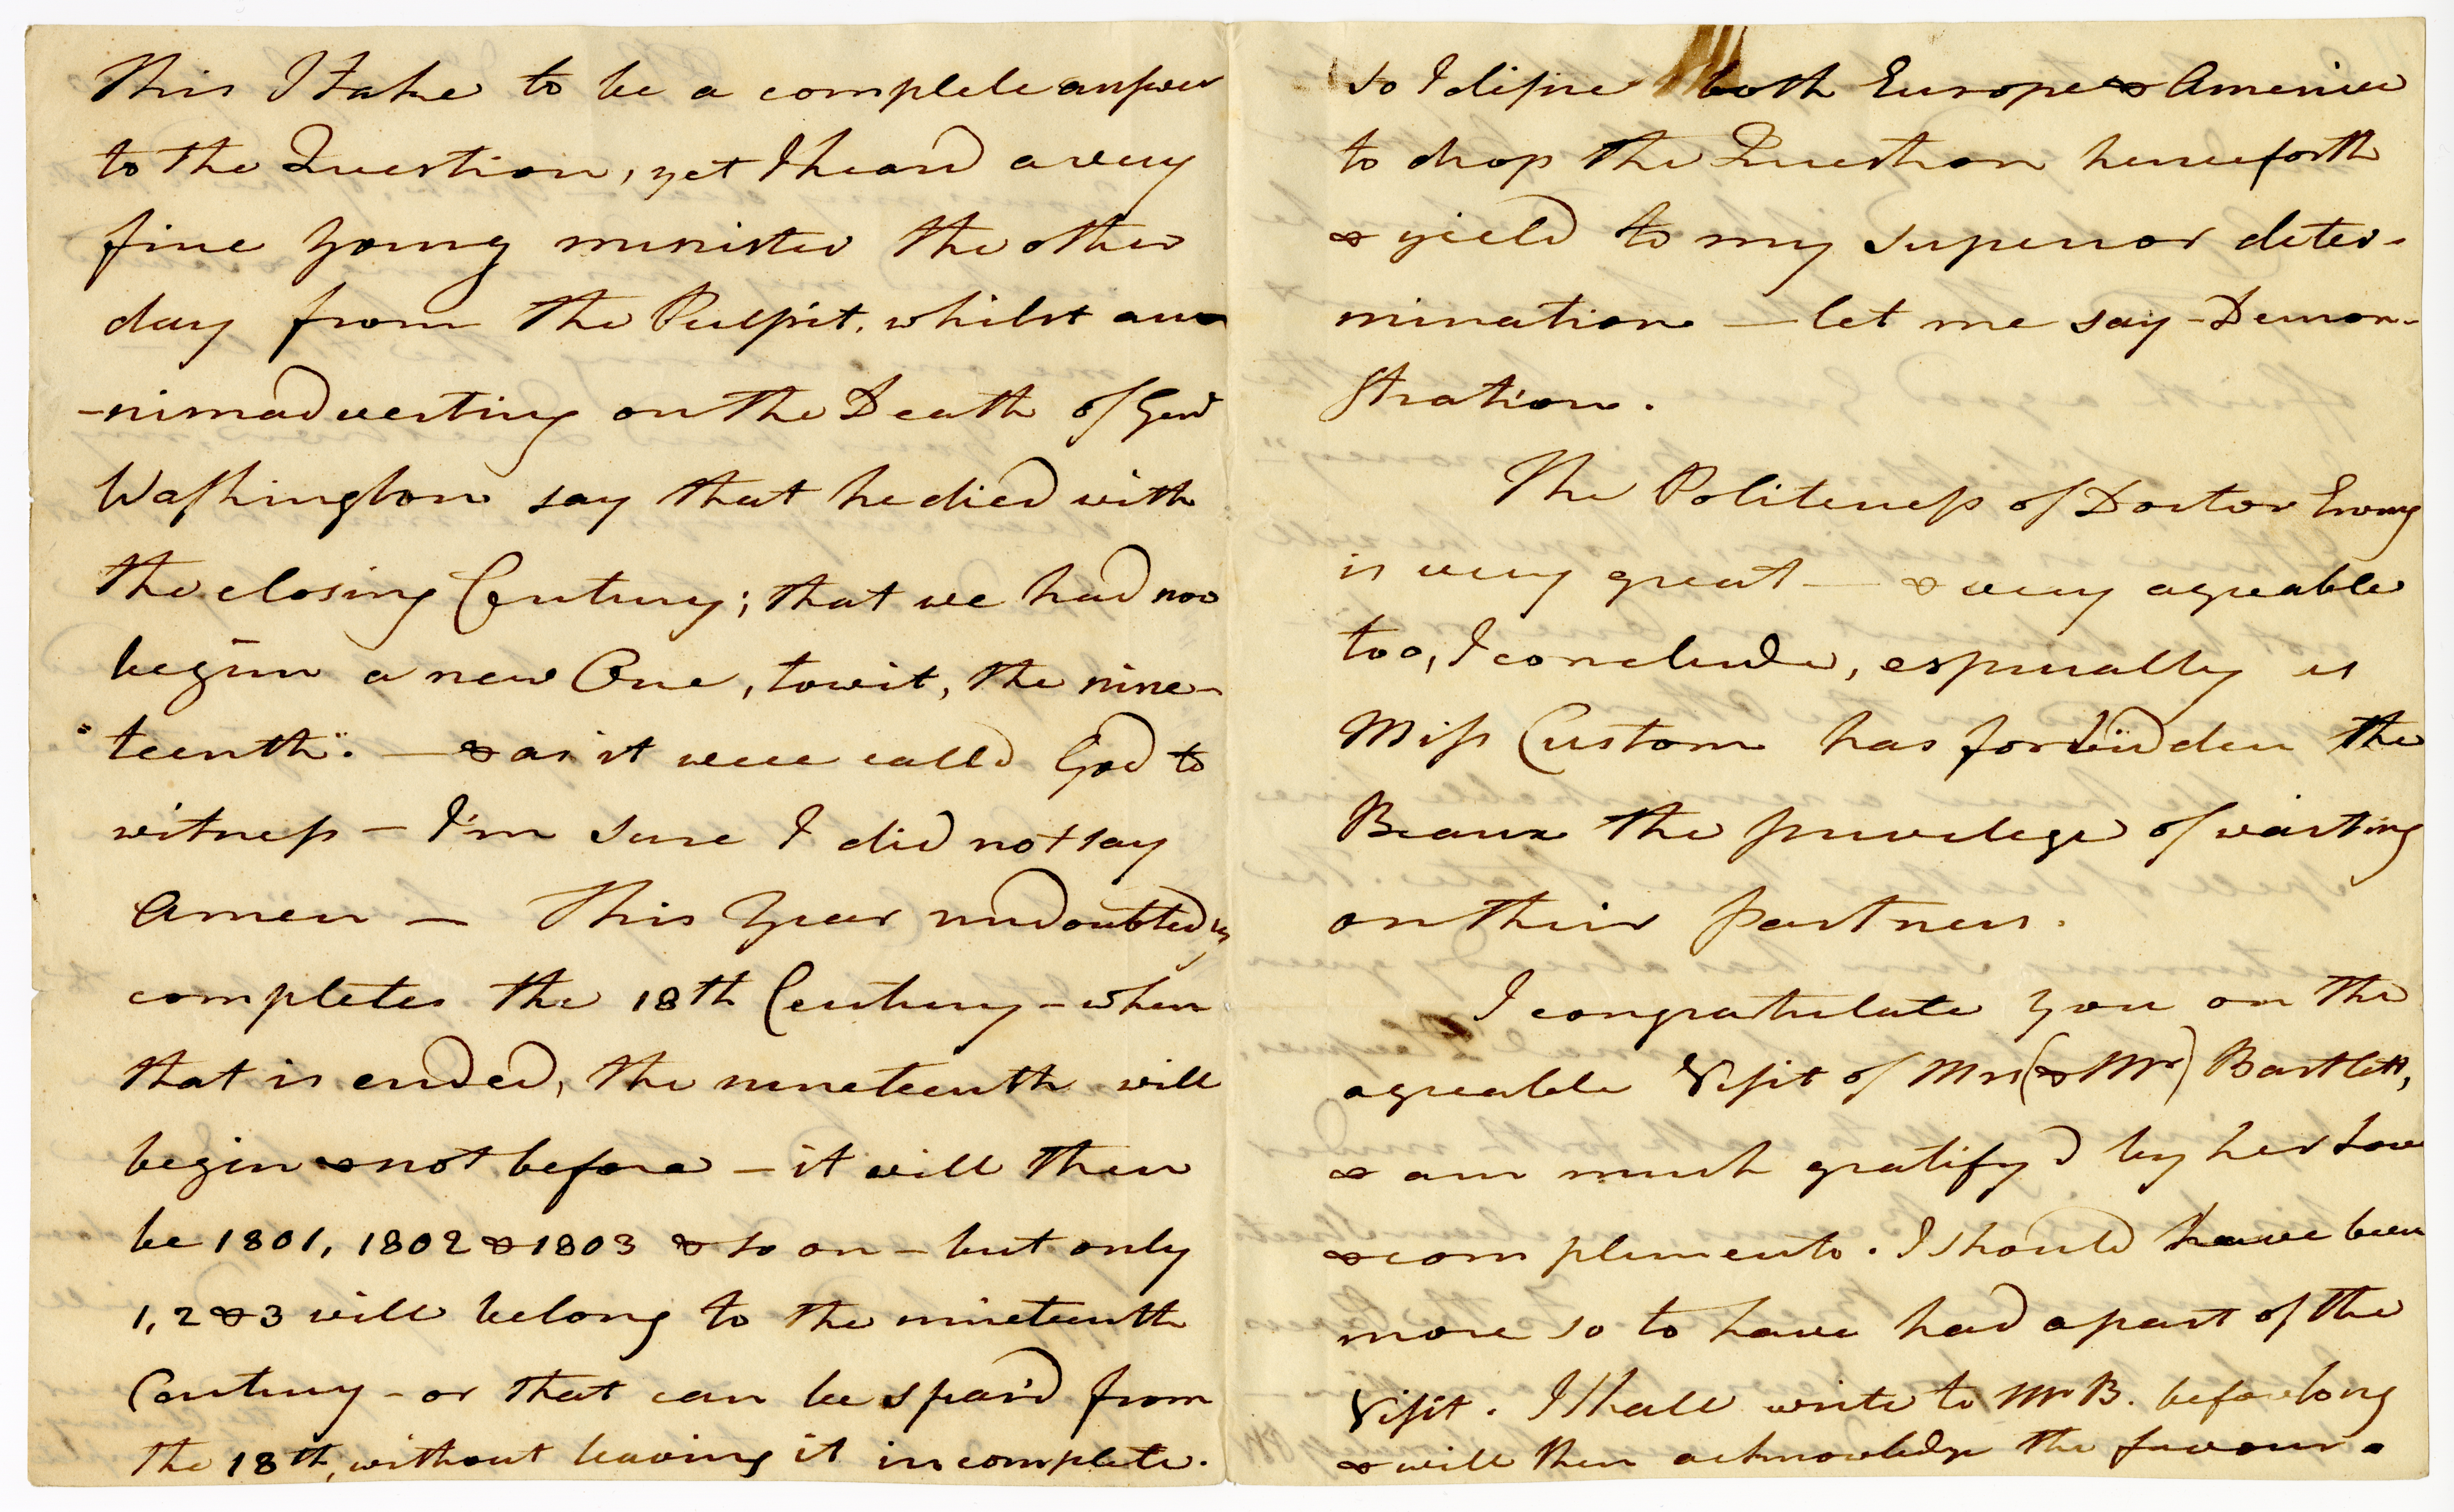 This I take to be a complete answer
to the Question, yet I heard a very
fine young minister the other
day from the Pulpit, whilst an
-nimadverting on the Death of Genl
Washington say that he died with
the closing Century; that we had now
begun a new One, towit, the nine-
"teenth". — & as it were calld God to
witness — I'm sure I did not say
Amen — This Year undoubtedly
completes the 18th Century - when
that is ended, the nineteenth will
begin & not before — it will then
be 1801, 1802 & 1803 & so on — but only
1, 2 & 3 will belong to the nineteenth
Century - or that can be spar'd from
the 18th, without leaving it incomplete.
so I desire both Europe & America
to drop the Question henceforth
& yield to my superior deter-
mination — let me say - Demon-
stration.
The Politeness of Doctor Ewing
is very great — & very agreable
too, I conclude, especially as
Miss Custom has forbidden the
Beaux the privilege of waiting
on their partners.
I congratulate you on the
agreable Visit of Mrs (& Mr) Bartlett,
& am much gratify'd by her Love
& compliments. I should have been
more so to have had a part of the
Visit. I shall write to Mr B. before long
& will then acknowledge the favour.